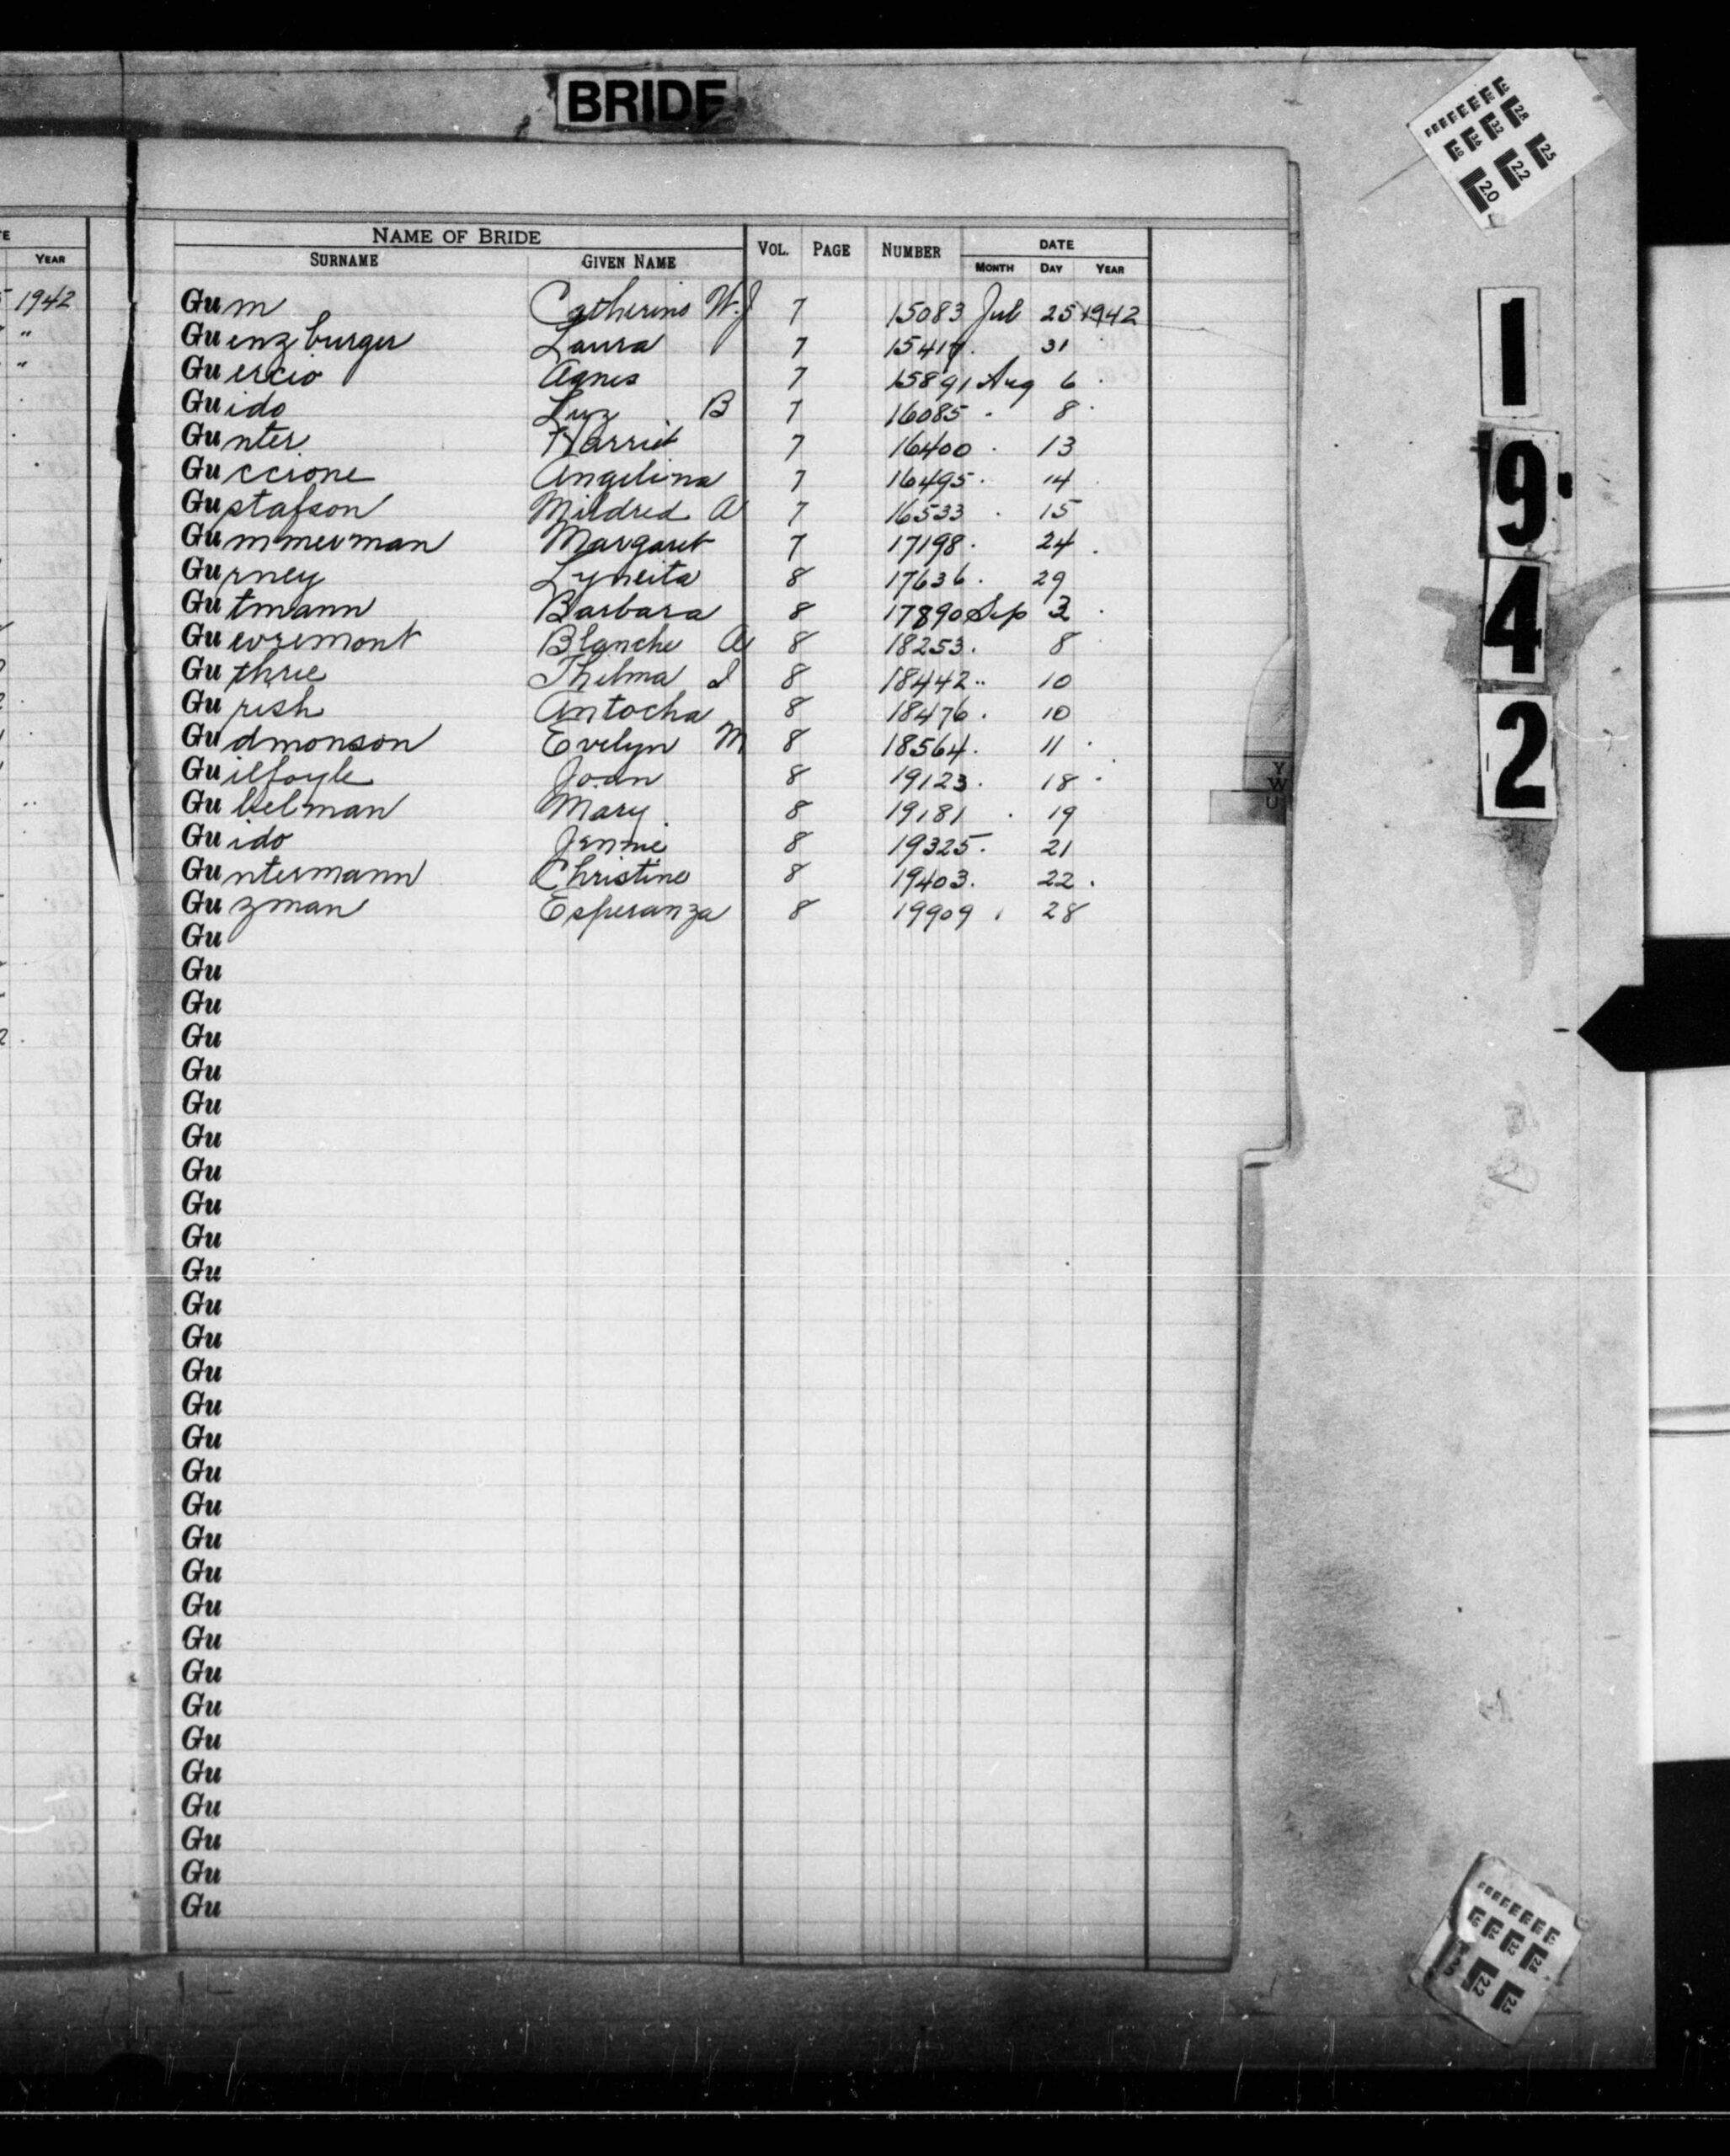 BRIDE
YEAR
1942
NAME OF BRIDE
SURNAME GIVEN NAME VOL. PAGE NUMBER DATE
MONTH DAY YEAR
Gum Catherine W.J 7 15083 Jul 25 1942
Guenzburger Laura 7 15417. 31
Guercio Agnes 7 15891 Aug 6
Guido Luz B 7 16085 8
Gunter Harriet 7 16400 13
Guccione Angelina 7 16495 14
Gustafson Mildred A 7 16533 15
Gummerman Margaret 7 17198 24
Gurney Lyneita 8 17636 29
Gutmann Barbara 8 17890 Sep 3
Guevremont Blanche A 8 18253 8
Guthrie Thelma I 8 18442 10
Gurish Antocha 8 18476 10
Gudmonson Evelyn M 8 18564 11
Guilfoyle Joan 8 19123 18
Gubelman Mary 8 19181 19
Guido Jennie 8 19325 21
Guntermann Christine 8 19403 22
Guzman Esperanza 8 19909 28
Gu
Gu
Gu
Gu
Gu
Gu
Gu
Gu
Gu
Gu
Gu
Gu
Gu
Gu
Gu
Gu
Gu
Gu
Gu
Gu
Gu
Gu
Gu
Gu
Gu
Gu
Gu
Gu
Gu
Gu
Y
W
U
1
9
4
2
28
32
36
40
25
22
20
28
32
25
22